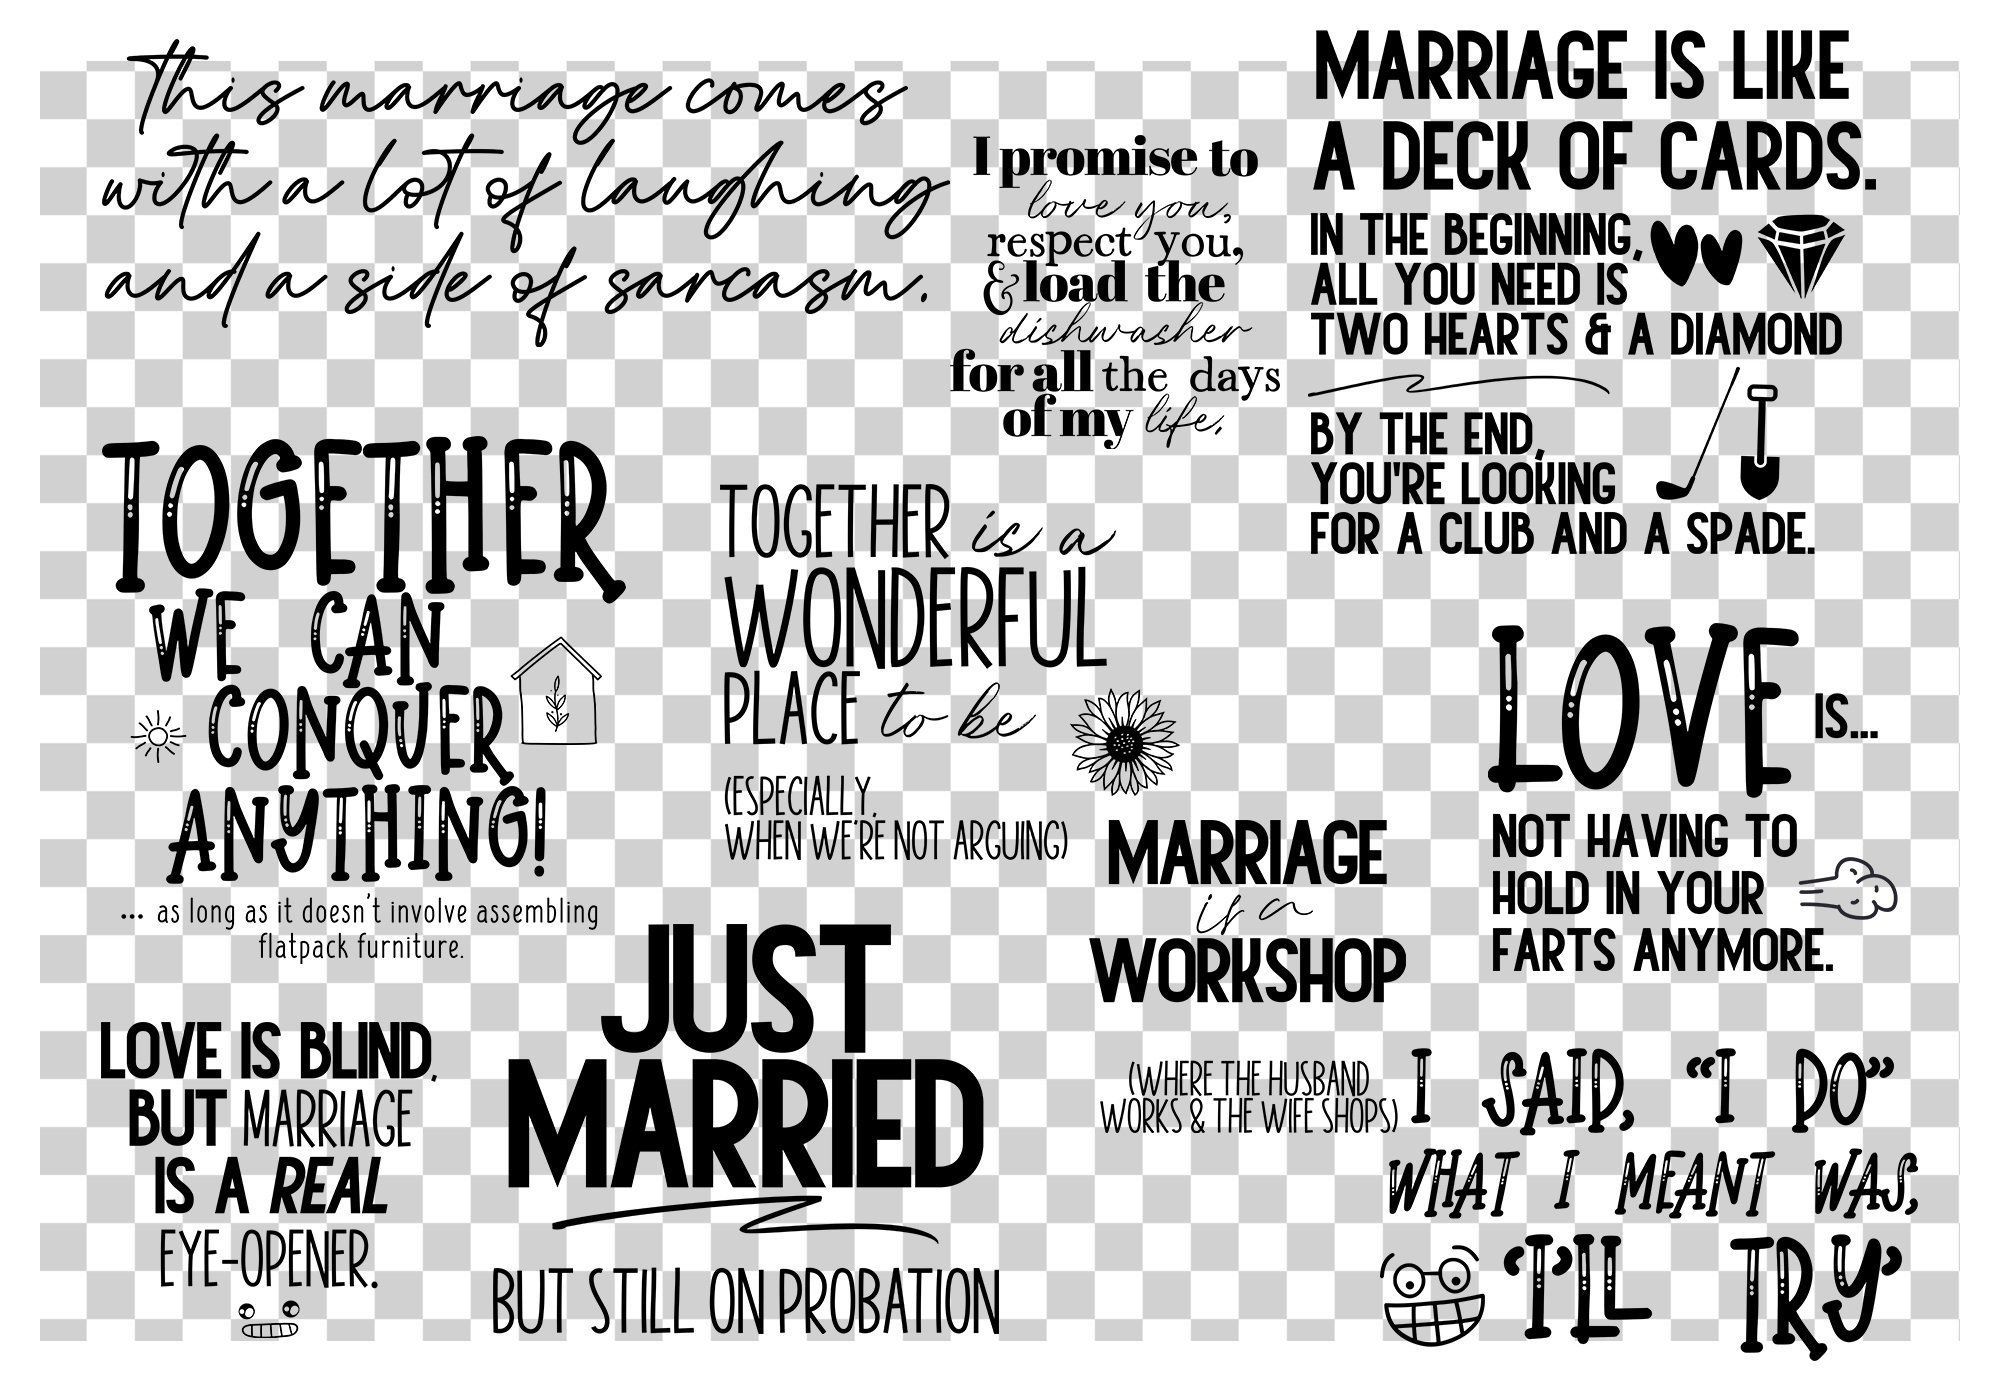 This marriage comes
with a lot of laughing
and a side of sarcasm.
I promise to
love you,
respect you,
& load the
dishwasher
for all the days
of my life.
MARRIAGE IS LIKE
A DECK OF CARDS.
IN THE BEGINNING,
ALL YOU NEED IS
TWO HEARTS & A DIAMOND
BY THE END,
YOU'RE LOOKING
FOR A CLUB AND A SPADE.
TOGETHER
WE CAN
CONQUER
ANYTHING!
... as long as it doesn't involve assembling
flatpack furniture.
TOGETHER is a
WONDERFUL
PLACE to be
(ESPECIALLY,
WHEN WE'RE NOT ARGUING)
LOVE IS...
NOT HAVING TO
HOLD IN YOUR
FARTS ANYMORE.
MARRIAGE
is a
WORKSHOP
(WHERE THE HUSBAND
WORKS & THE WIFE SHOPS)
LOVE IS BLIND,
BUT MARRIAGE
IS A REAL
EYE-OPENER.
JUST
MARRIED
BUT STILL ON PROBATION
I SAID, "I DO"
WHAT I MEANT WAS,
'I'LL TRY'